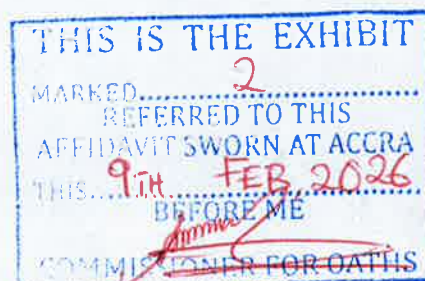 THIS IS THE EXHIBIT
MARKED.......2.......
REFERRED TO THIS
AFFIDAVIT SWORN AT ACCRA
THIS....9TH....FEB, 2026
BEFORE ME
COMMISSIONER FOR OATHS